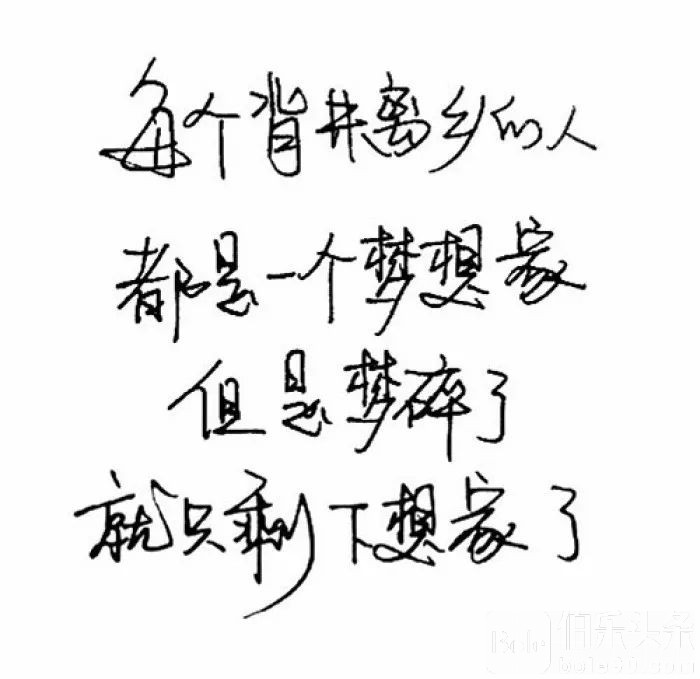 每个背井离乡的人
都是一个梦想家
但是梦碎了
就只剩下想家了
伯乐头条